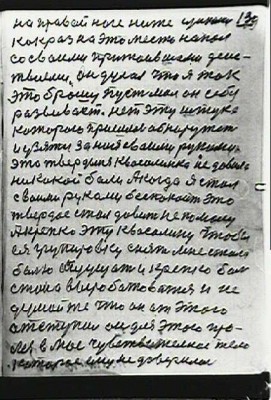 на правой ноге ниже 13
как раз на это место напал
со своими
он думал что я так
это брошу пустмол он себу
развивает. нет эту штуку
которого пришлось обнаружит
и взять за ния своими руками
это твердиня квасолинка не довала
никакой боли А когда я стал
своими руками беспокоит это
твердое стал довить не помалу
А крепко эту квасолину чтобы
ся групировку снять мне стало
больно Слушать и крепко бол
стала выробатоватся и не
думайте что он от этого
отступил он для этого про
лез в мое чувствительное тело
которое ему не доверилос